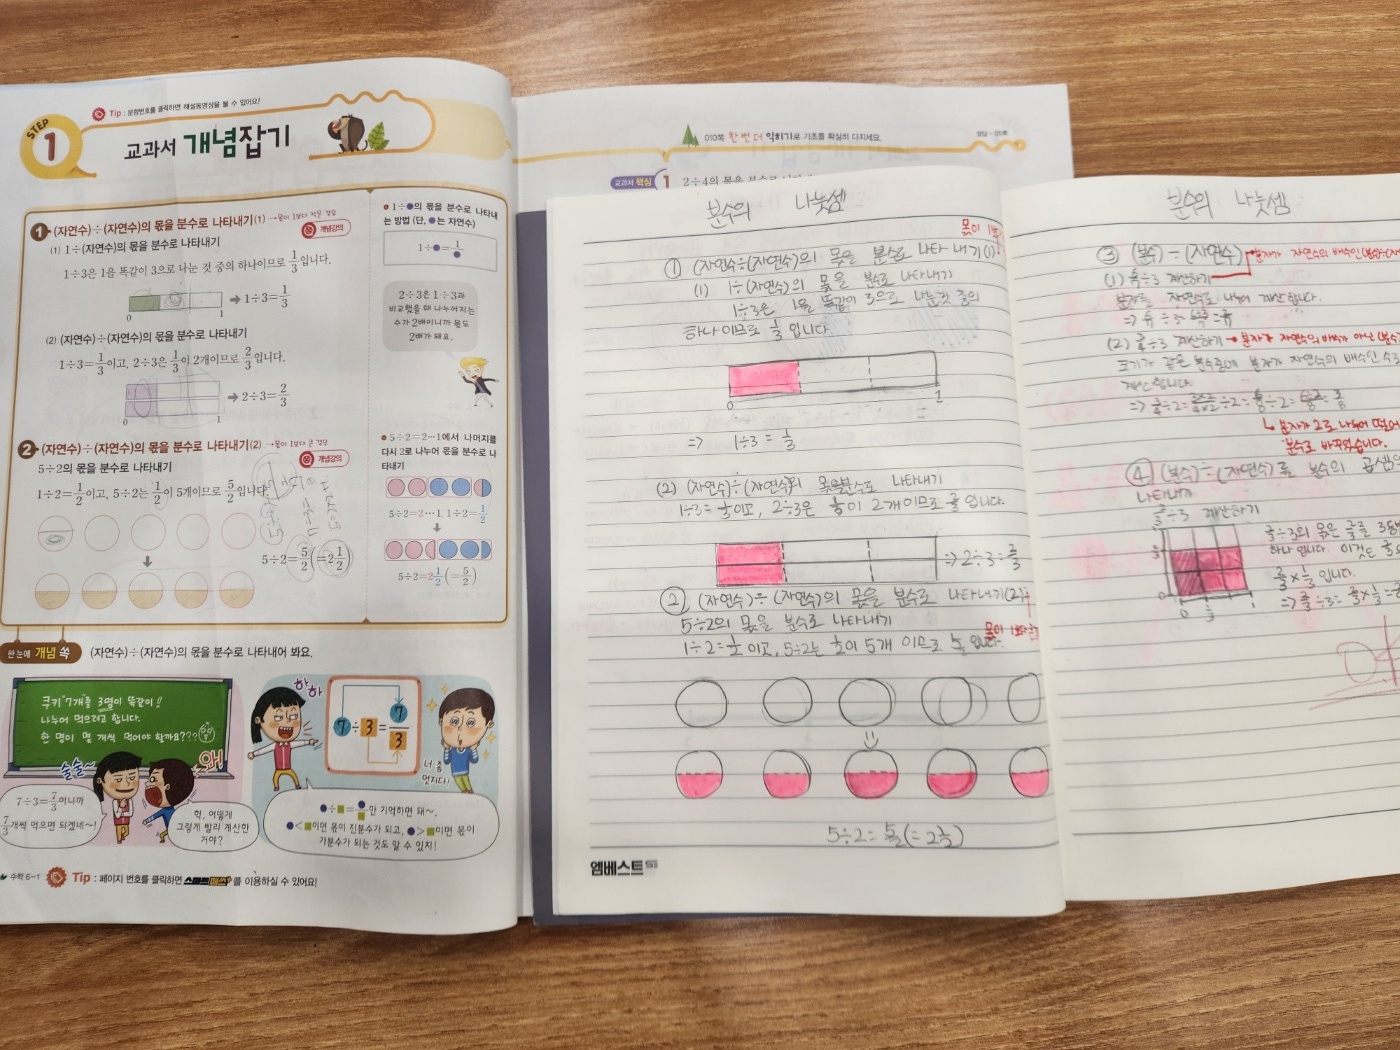 Tip : 문항번호를 클릭하면 해설동영상을 볼 수 있어요!
STEP 1
교과서 개념잡기
1 (자연수)÷(자연수)의 몫을 분수로 나타내기(1) →몫이 1보다 작은 경우
개념강의
(1) 1÷(자연수)의 몫을 분수로 나타내기
1÷3은 1을 똑같이 3으로 나눈 것 중의 하나이므로 1/3입니다.
0 1 ➡ 1÷3=1/3
(2) (자연수)÷(자연수)의 몫을 분수로 나타내기
1÷3=1/3이고, 2÷3은 1/3이 2개이므로 2/3입니다.
0 1 ➡ 2÷3=2/3
2 (자연수)÷(자연수)의 몫을 분수로 나타내기(2) →몫이 1보다 큰 경우
개념강의
5÷2의 몫을 분수로 나타내기
1÷2=1/2이고, 5÷2는 1/2이 5개이므로 5/2입니다.
5÷2=5/2(=2 1/2)
1÷●의 몫을 분수로 나타내
는 방법 (단, ●는 자연수)
1÷●=1/●
2÷3은 1÷3과
비교했을 때 나누어지는
수가 2배이니까 몫도
2배가 돼요.
5÷2=2···1에서 나머지를
다시 2로 나누어 몫을 분수로 나
타내기
5÷2=2···1, 1÷2=1/2
5÷2=2 1/2(=5/2)
한눈에 개념 쏙
(자연수)÷(자연수)의 몫을 분수로 나타내어 봐요.
쿠키 7개를 3명이 똑같이!!
나누어 먹으려고 합니다.
한 명이 몇 개씩 먹어야 할까요???
술술~
와!
7÷3=7/3이니까
7/3개씩 먹으면 되겠네~!
헉, 어떻게
그렇게 빨리 계산한
거야?
하하
7÷3=7/3
너 좀
멋지다!
●÷■=●/■만 기억하면 돼~.
●<■이면 몫이 진분수가 되고, ●>■이면 몫이
가분수가 되는 것도 알 수 있지!
수학 6-1
Tip : 페이지 번호를 클릭하면 스마트매쓰를 이용하실 수 있어요!
010쪽 한 번 더 익히기로 기초를 확실히 다지세요.
교과서 핵심 1
분수의 나눗셈
① (자연수÷(자연수)의 몫을 분수로 나타내기(1)
(1) 1÷(자연수)의 몫을 분수로 나타내기
1÷3은 1을 똑같이 3으로 나눈것 중의
하나 이므로 1/3 입니다.
0 1
=> 1÷3 = 1/3
(2) (자연수)÷(자연수)의 몫을분수로 나타내기
1÷3= 1/3이고, 2÷3은 1/3이 2개 이므로 2/3 입니다.
=> 2÷3=2/3
② (자연수)÷(자연수)의 몫을 분수로 나타내기(2)
5÷2의 몫을 분수로 나타내기
1÷2=1/2 이고, 5÷2는 1/2이 5개 이므로 5/2 입니다.
5÷2= 5/2(= 2 1/2)
엠베스트SE
분수의 나눗셈
③ (분수)÷(자연수)
(1) ÷3 계산하기
분자를 자연수로 나누어 계산 합니다.
(2) 3/4÷3 계산하기 → 분자가 자연수의 배수가 아닌
크기가 같은 분수로에 분자가 자연수의 배수인 수로
계산 합니다.
분자가 2로 나누어 떨어
분수로 바꾸었습니다.
④ (분수)÷(자연수)를 분수의 곱셈으
나타내기
÷3 계산하기
하나 입니다. 이것은
2/3×1/3 입니다.
0 1